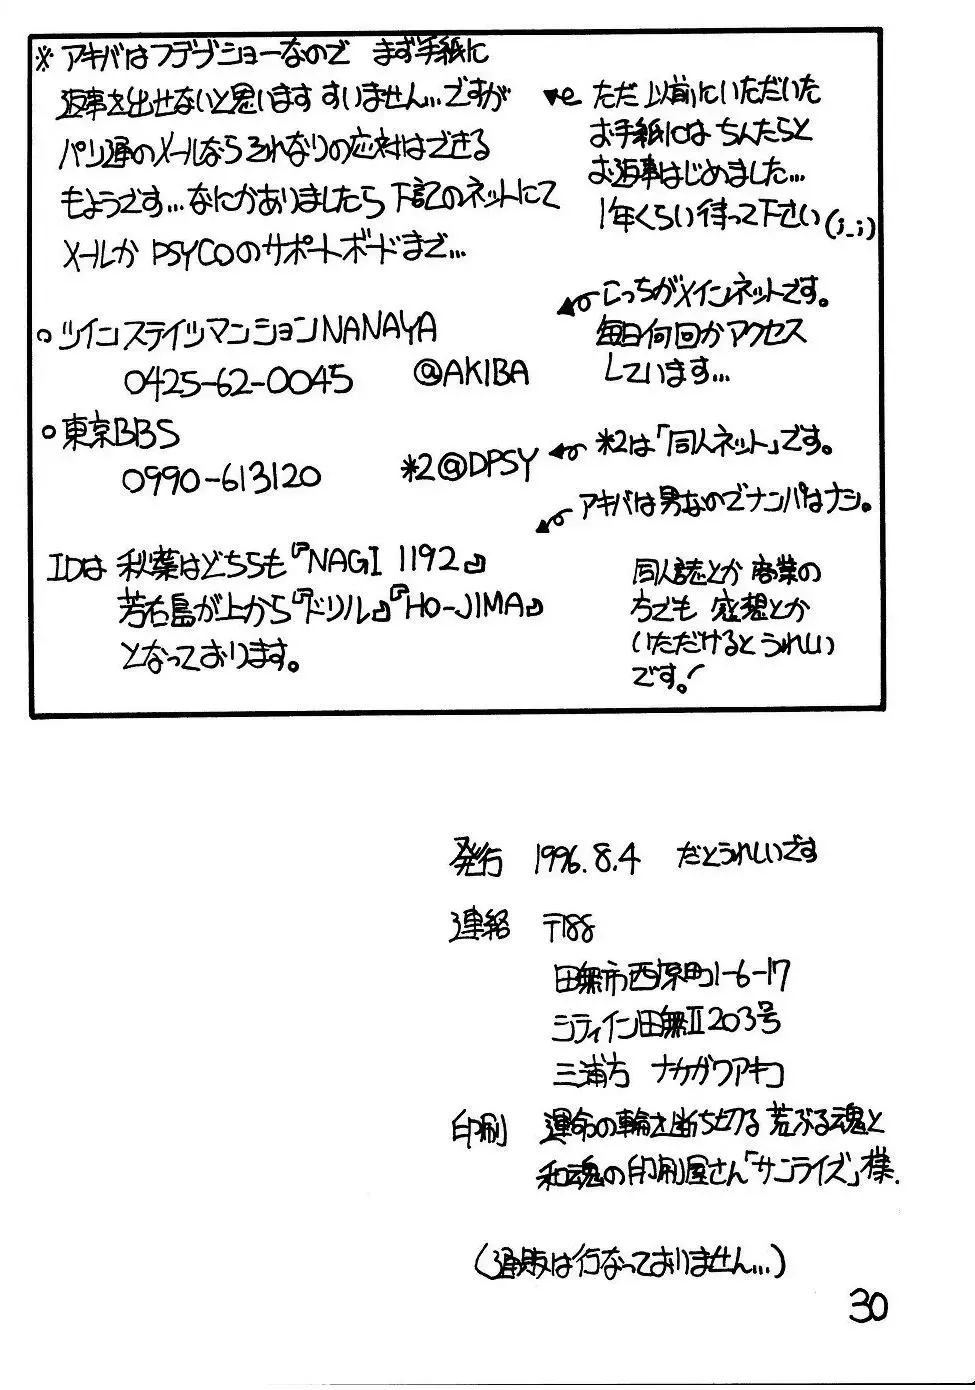 ※アキバはフデブショーなので まず手紙に
返事を出せないと思います すいません…ですが
パソ通のメールなら それなりの応対はできる
もようです…なにかありましたら 下記のネットにて
メールか PSYCOのサポートボードまで…
ただ 以前にいただいた
お手紙には ちんたらと
お返事はじめました…
1年くらい待って下さい(;_;)
○ツインステイツマンションNANAYA
0425-62-0045 @AKIBA
こっちがメインネットです。
毎日何回かアクセス
しています…
○東京BBS
0990-613120 *2@DPSY
*2は「同人ネット」です。
アキバは男なのでナンパはナシ。
IDは 秋葉はどちらも『NAGI 1192』
芳右島が上から『ドリル』『HO-JIMA』
となっております。
同人誌とか 商業の
方でも 感想とか
いただけるとうれしい
です。!
発行 1996.8.4 だとうれしいです
連絡 〒188
田無市西原町1-6-17
シティイン田無II203号
三浦方 ナカガワアキコ
印刷 運命の輪を断ち切る 荒ぶる魂と
和魂の印刷屋さん「サンライズ」様.
(通販は行なっておりません…)
30